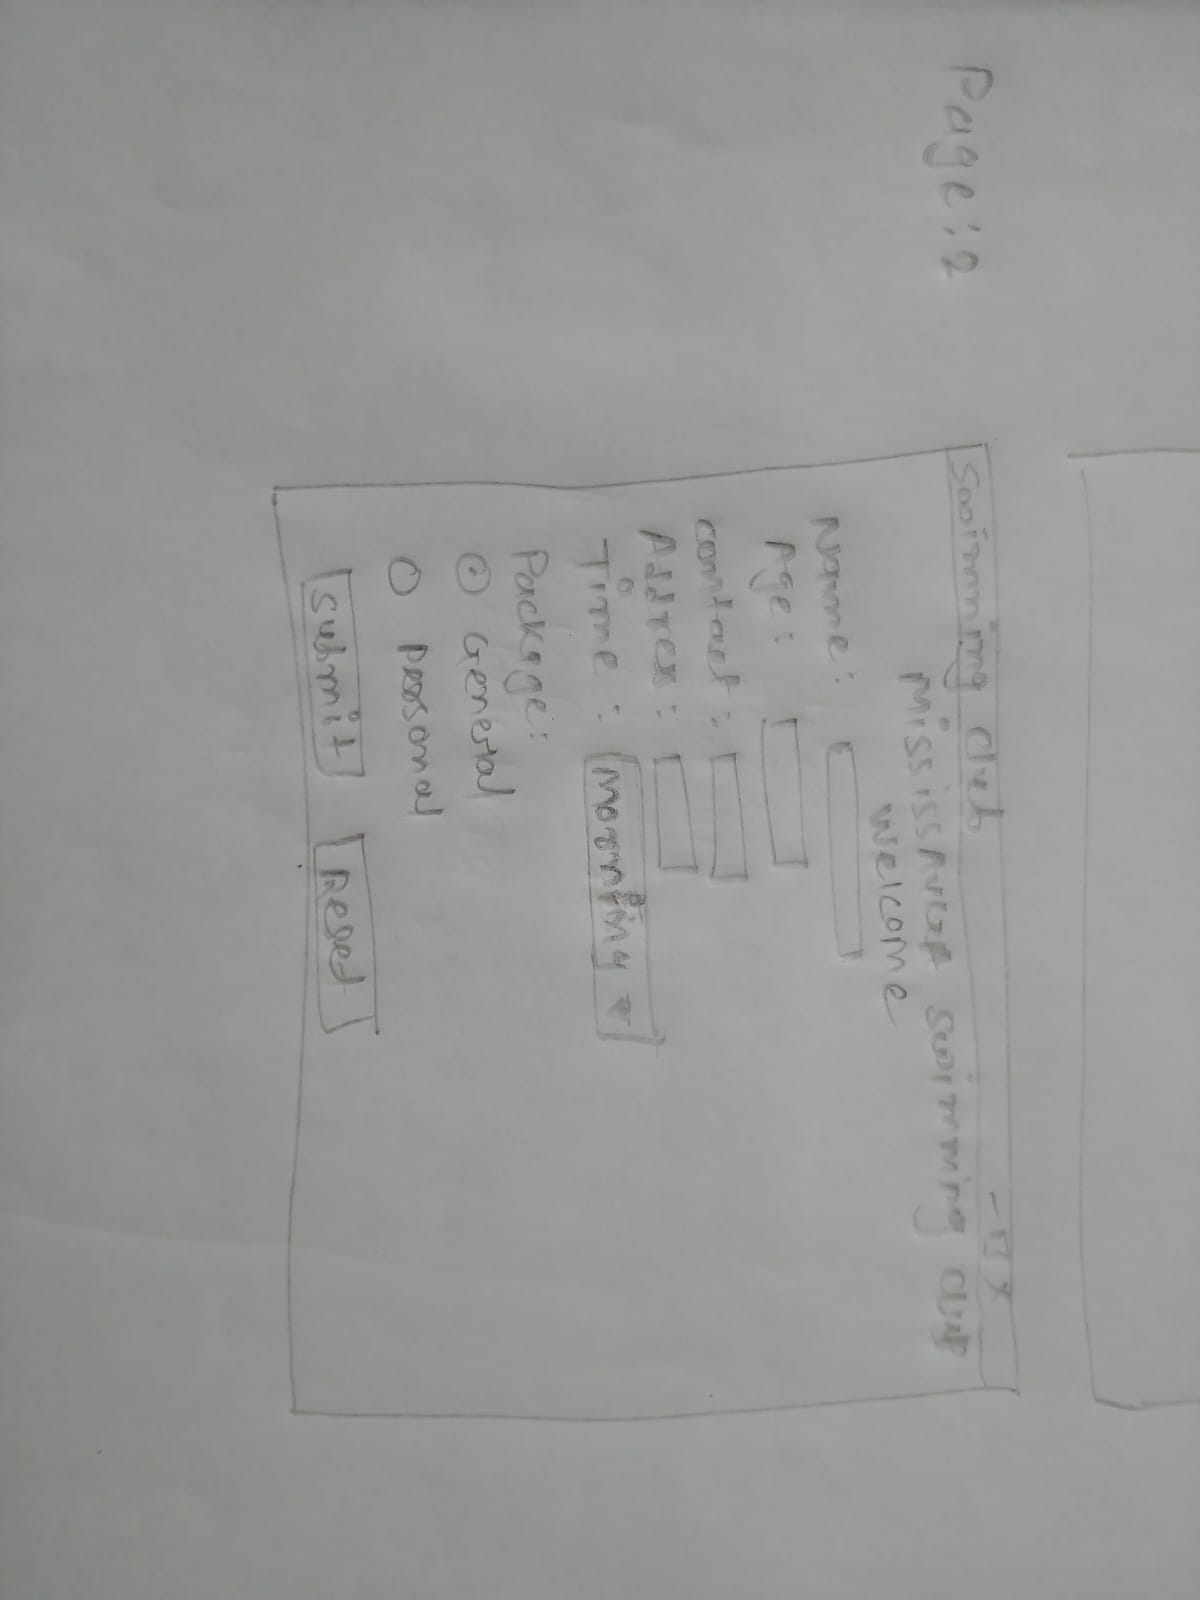 Page: 2
Swimming club - □ X
Mississauga swimming club
Welcome
Name:
Age:
contact:
Address:
Time: Morning ▼
Package:
General
personal
Submit Reset